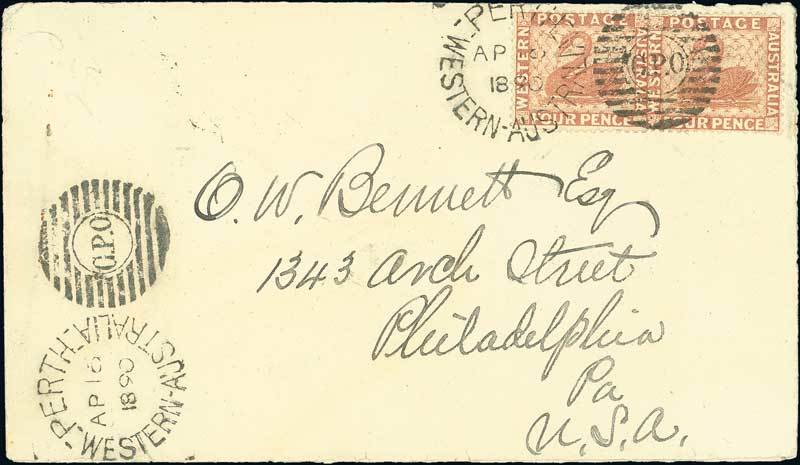 PERTH
AP 16
1890
WESTERN-AUSTRALIA
WESTERN POSTAGE AUSTRALIA
FOUR PENCE
G.P.O
WESTERN POSTAGE AUSTRALIA
FOUR PENCE
O. W. Bennett Esq
1343 Arch Street
Philadelphia
Pa
U.S.A.
G.P.O
PERTH.
AP 16
1890
WESTERN-AUSTRALIA